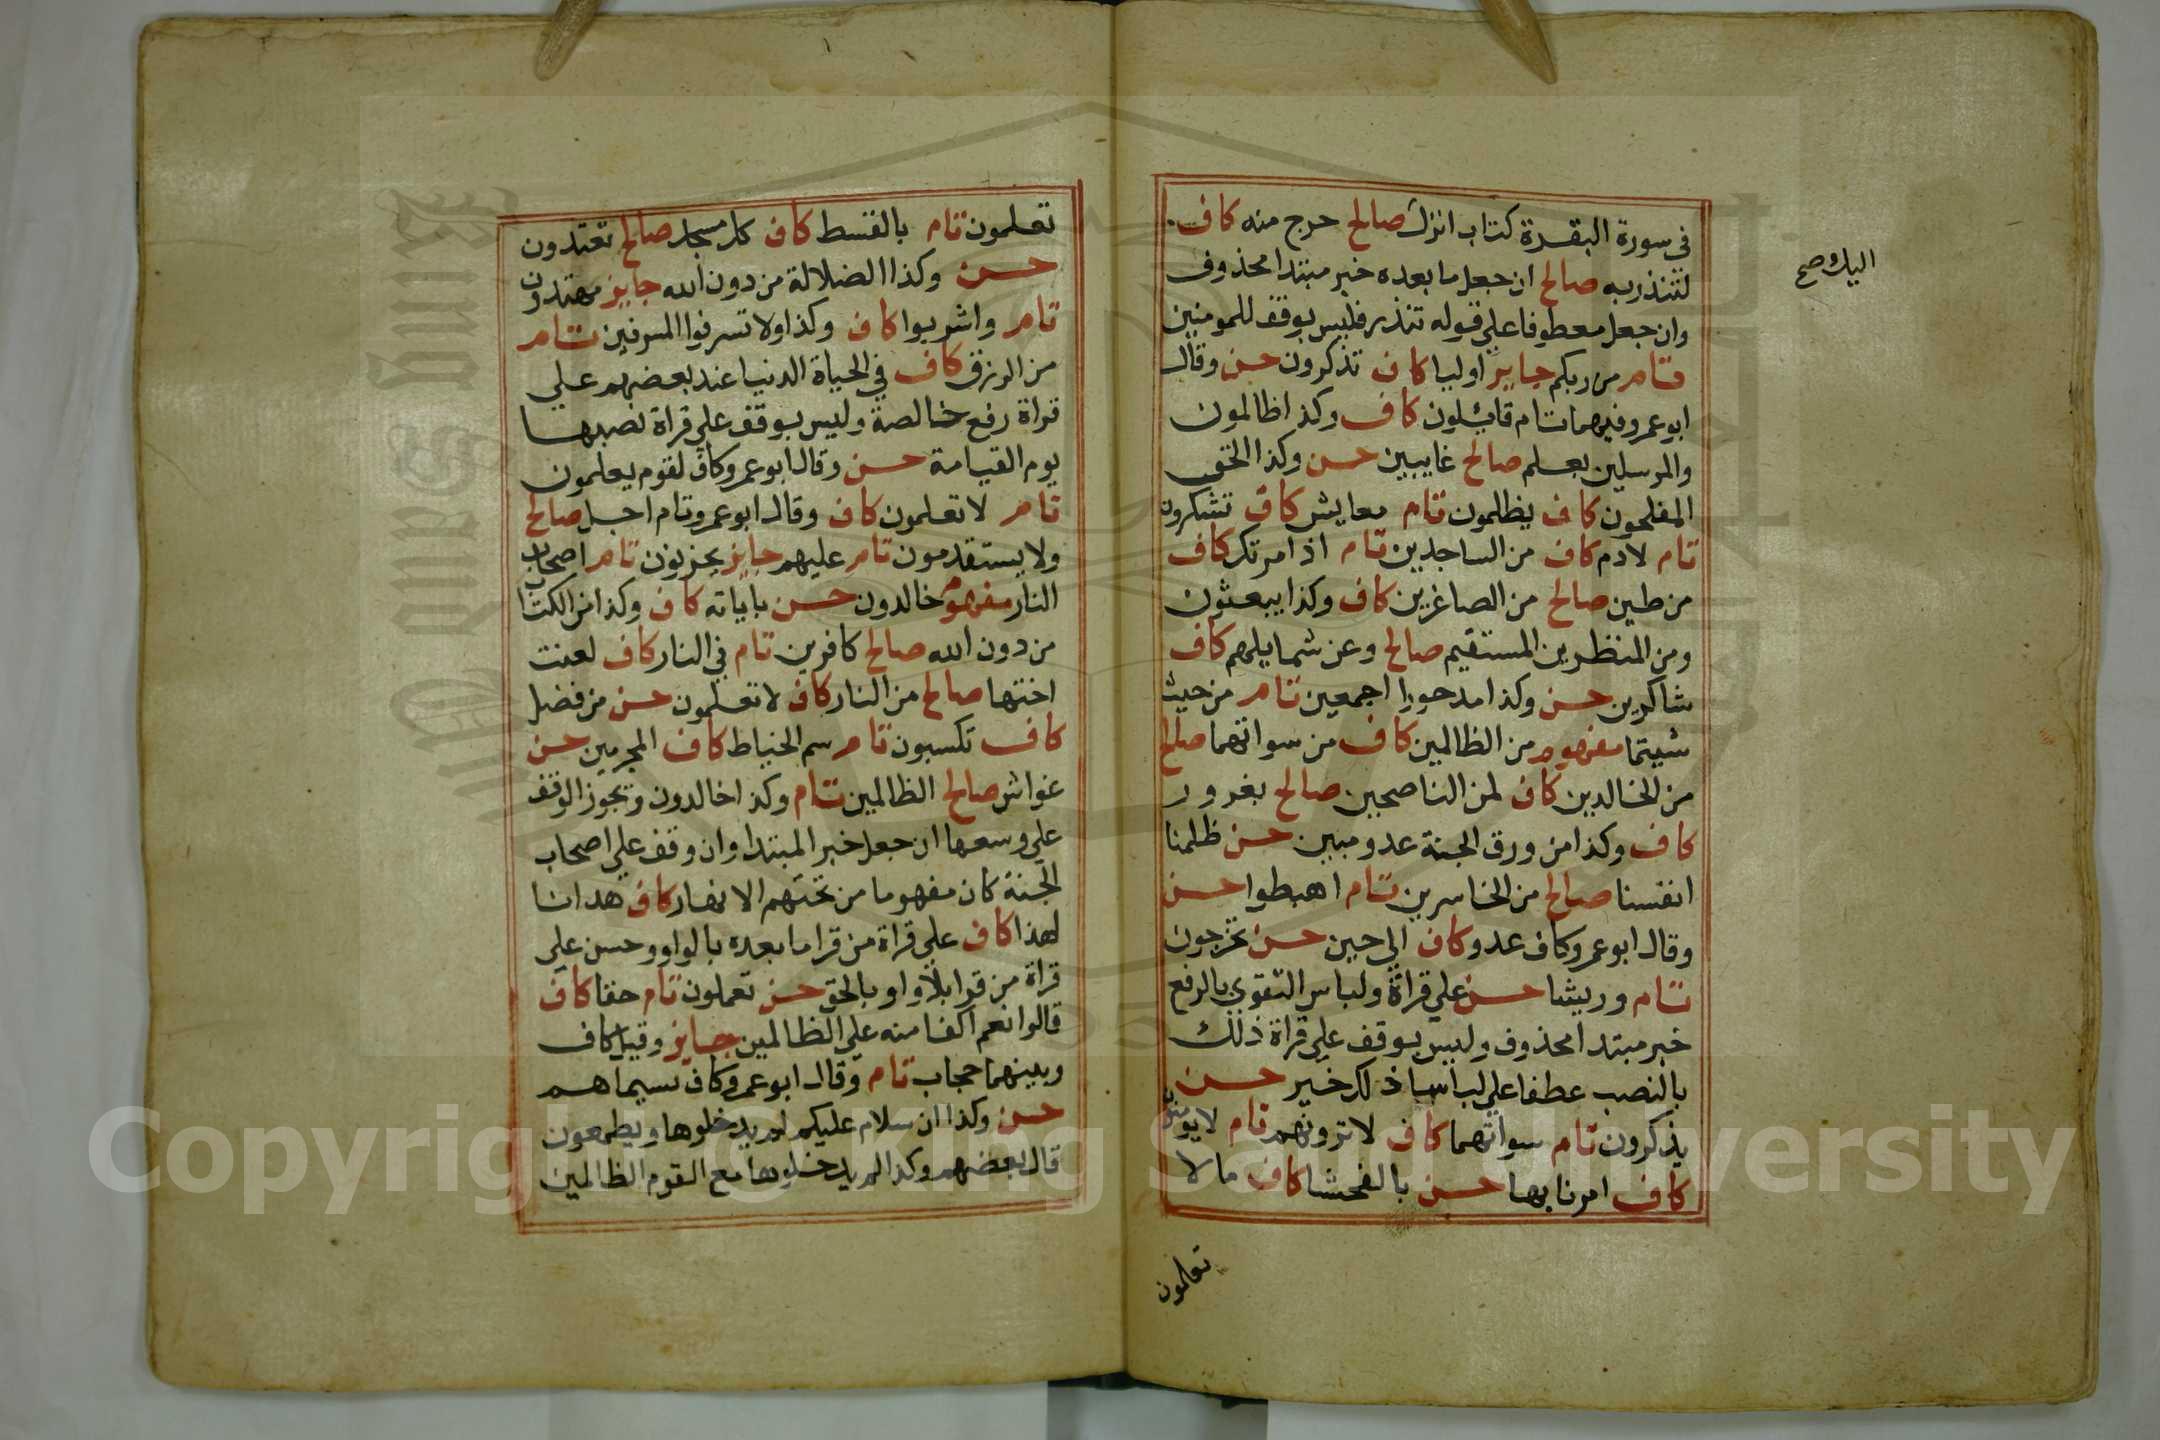 في سورة البقرة كتاب انزل صالح حرج منه كاف
اليك وصح
لتنذر به صالح ان جعل ما بعده خبر مبتدا محذوف
وان جعل معطوفا على قوله تنذر فليس بوقف للمومنين
تام من ربكم جايز اوليا كاف تذكرون حسن وقال
ابو عمرو فيهما تام قايلون كاف وكذا ظالمون
والمرسلين بعلم صالح غايبين حسن وكذا الحق
المفلحون كاف يظلمون تام معايش كاف تشكرون
تام لادم كاف من الساجدين تام اذ امرتك كاف
من طين صالح من الصاغرين كاف وكذا يبعثون
ومن المنظرين المستقيم صالح وعن شمايلهم كاف
شاكرين حسن وكذا مدحورا اجمعين تام من حيث
شيتما مفهوم من الظالمين كاف من سواتهما صالح
من الخالدين كاف لمن الناصحين صالح بغرور
كاف وكذا من ورق الجنة عدو مبين حسن ظلمنا
انفسنا صالح من الخاسرين تام اهبطوا حسن
وقال ابو عمرو كاف عدو كاف الى حين حسن تخرجون
تام وريشا حسن على قراة ولباس التقوى بالرفع
خبر مبتدا محذوف وليس بوقف على قراة ذلك
بالنصب عطفا على لباسا ذلك خير حسن
يذكرون تام سواتهما كاف لا ترونهم تام لا يومنون
كاف امرنا بها حسن بالفحشا كاف ما لا
تعلمون
تعلمون تام بالقسط كاف كل مسجد صالح تعتدون
حسن وكذا الضلالة من دون الله جايز مهتدون
تام واشربوا كاف وكذا ولا تسرفوا المسرفين تام
من الرزق كاف في الحياة الدنيا عند بعضهم علي
قراة رفع خالصة وليس بوقف علي قراة نصبها
يوم القيامة حسن وقال ابو عمرو كاف لقوم يعلمون
تام لا تعلمون كاف وقال ابو عمرو تام اجل صالح
ولا يستقدمون تام عليهم جايز يحزنون تام اصحاب
النار مفهوم خالدون حسن باياته كاف وكذا من الكتاب
من دون الله صالح كافرين تام في النار كاف لعنت
اختها صالح من النار كاف لا تعلمون حسن من فضل
كاف تكسبون تام سم الخياط كاف المجرمين حسن
غواش صالح الظالمين تام وكذا خالدون وتجوز الوقف
علي وسعها ان جعل خبر المبتدا وان وقف علي اصحاب
الجنة كان مفهوما من تحتهم الانهار كاف هدانا
لهذا كاف علي قراة من قرا ما بعده بالواو وحسن علي
قراة من قرا بلا واو بالحق حسن تعملون تام حقا كاف
قالوا نعم اكفا منه علي الظالمين جايز وقيل كاف
وبينهما حجاب تام وقال ابو عمرو كاف بسيماهم
حسن وكذا ان سلام عليكم لم يدخلوها ويطمعون
قال بعضهم وكذا لم يدخلوها مع القوم الظالمين
Copyright © King Saud University